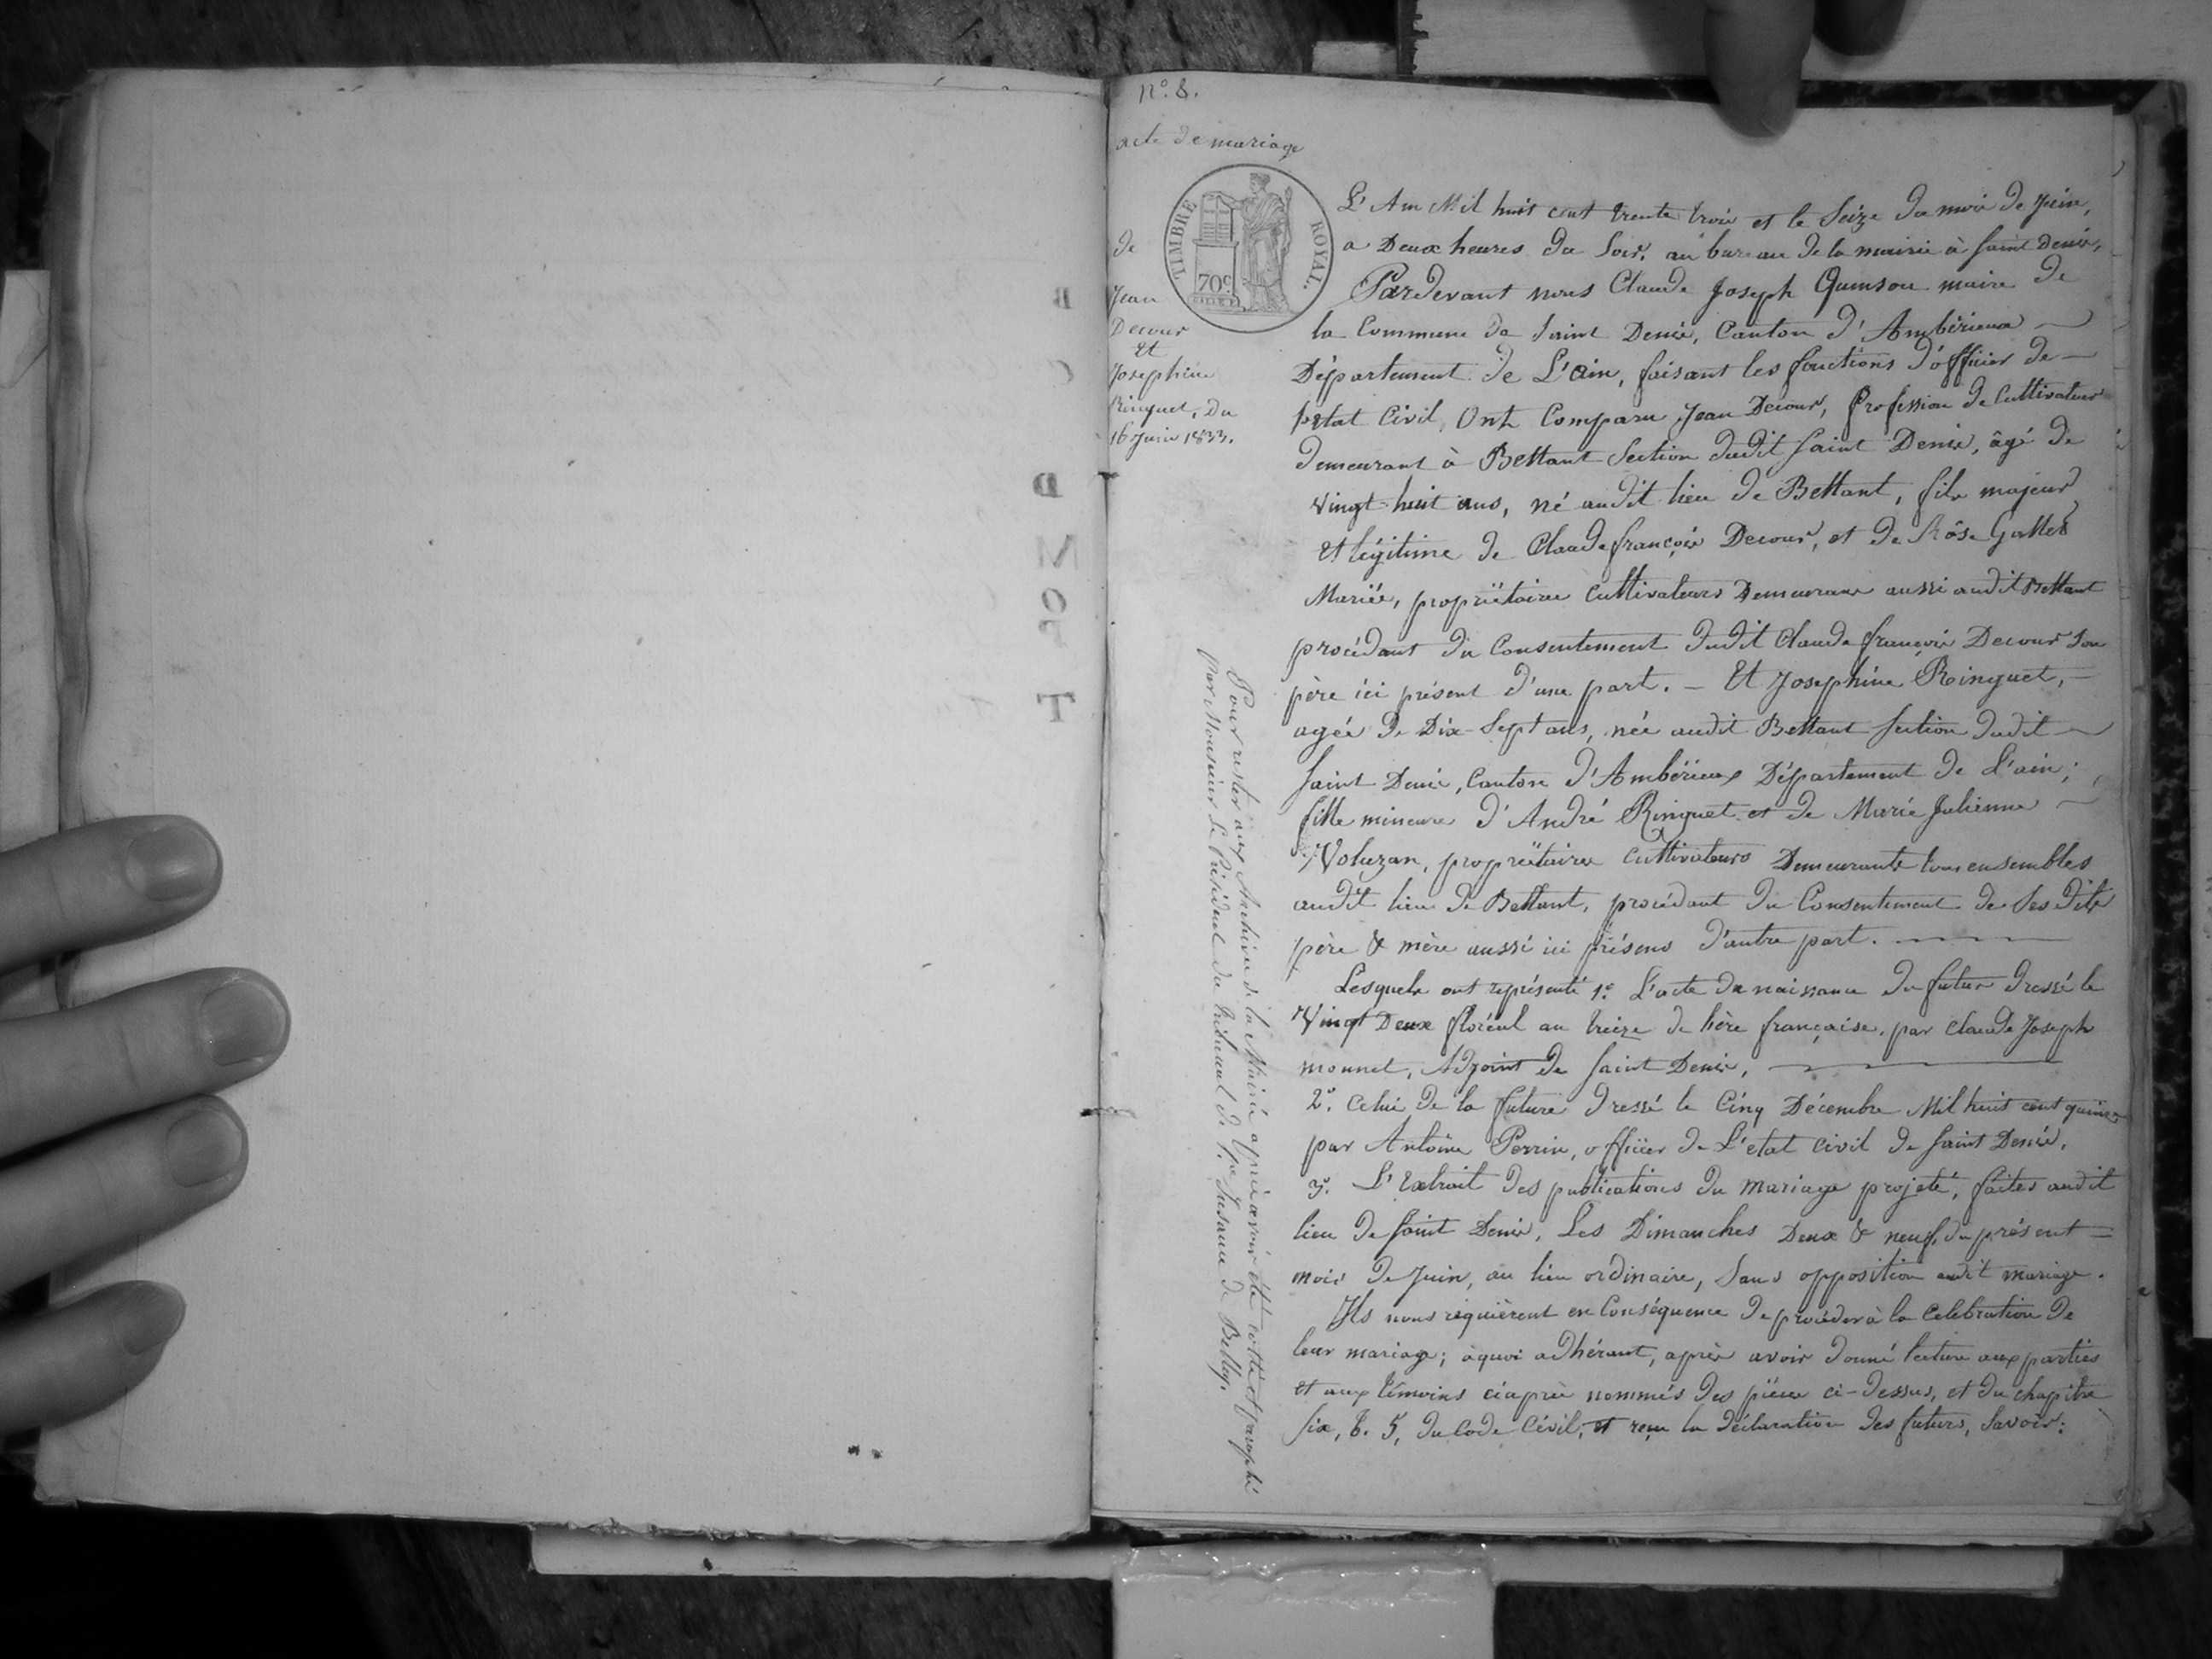 N.° 8.
acte de mariage
de
Jean
Decour
Et
Josephine
Ringuet, Du
16 Juin 1833.
TIMBRE ROYAL.
70c.
L'An Mil huit cent trente trois et le Seize du mois de Juin,
a Deux heures du Soir, au bureau de la mairie à Saint Denis,
Pardevant nous Claude Joseph Quinson maire de
la Commune de Saint Denis, Canton d'Ambérieux
Département de L'ain, faisant les fonctions d'officier de
l'etat Civil, Ont Comparu Jean Decour, Profession de Cultivateur
demeurant à Bettant Section dudit Saint Denis, âgé de
vingt-huit ans, né audit lieu de Bettant, fils majeur
Et légitime de Claude françois Decour, et de Rôse Gallet
Mariés, propriétaires Cultivateurs Demeurans aussi audit Bettant
procédant du Consentement dudit Claude françois Decour Son
père ici présent d'une part. – Et Josephine Ringuet,
agée de Dix-Sept ans, née audit Bettant Section dudit
Saint Denis, Canton d'Ambérieux Département de L'ain;
fille mineure d'André Ringuet et de Marie Julienne
Voluzan, propriétaires Cultivateurs Demeurants tous ensembles
audit lieu de Bettant, procédant du Consentement de Ses dits
père & mère aussi ici présens d'autre part.
Lesquels ont représenté 1.° L'acte de naissance du futur dressé le
Vingt Deux floréal an treize de lière française, par Claude Joseph
monnet, Adjoint de Saint Denis,
2.° Celui de la future dressé le Cinq Décembre Mil huit cent quinze
par Antoine Perrin, officier de L'etat civil de Saint Denis.
3.° L'Extrait des publications du mariage projeté, faites audit
lieu de Saint Denis, Les Dimanches Deux & neuf, du présent
mois de Juin, au lieu ordinaire, Sans opposition audit mariage.
Ils nous requièrent en Conséquence de procéder à la Celebration de
leur mariage; à quoi adhérant, après avoir donné lecture aux parties
et aux témoins ciaprès nommés des pièces ci-dessus, et du chapitre
Six, t. 5, du Code Civil, et reçu la déclaration des futurs, Savoir:
Pour rester aux Archives de la Mairie après avoir été cotté et paraphé
par Monsieur le Président du tribunal de 1.re Instance de Belley.